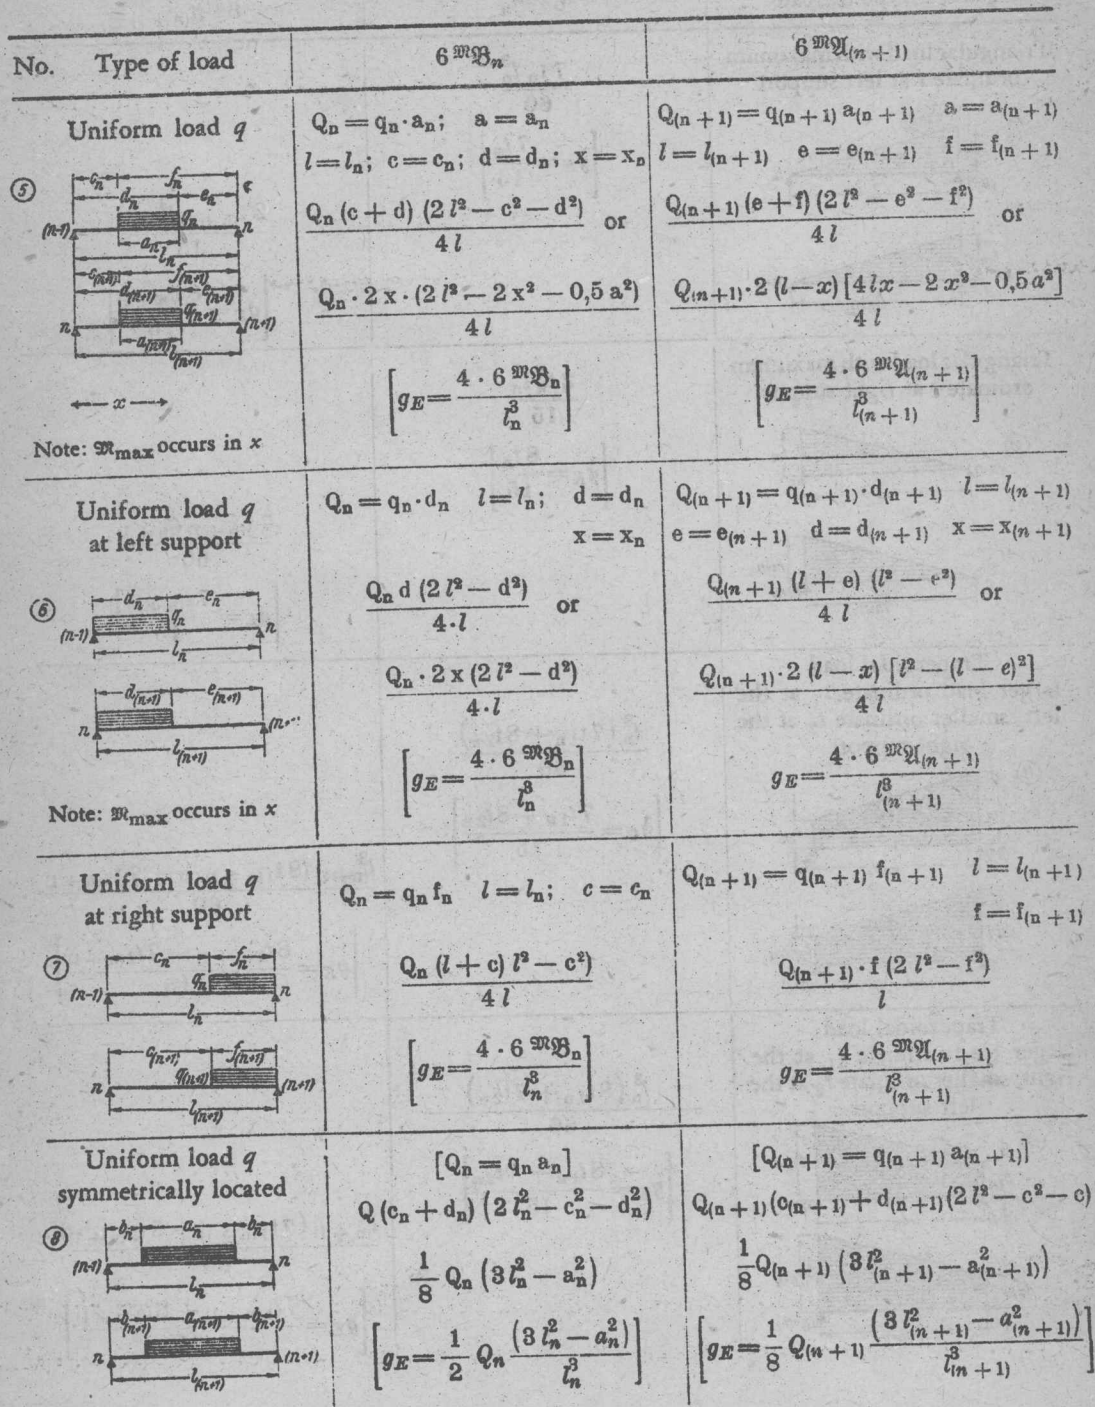 No. Type of load 6 𝔐𝔅ₙ 6 𝔐𝔄₍ₙ ₊ ₁₎
Uniform load q
⑤
cₙ fₙ
dₙ eₙ c
(n-1) qₙ n
aₙ
lₙ
c₍ₙ₊₁₎ f₍ₙ₊₁₎
d₍ₙ₊₁₎ e₍ₙ₊₁₎
n q₍ₙ₊₁₎ (n+1)
a₍ₙ₊₁₎
l₍ₙ₊₁₎
x
Note: 𝔐max occurs in x
Qₙ = qₙ · aₙ; a = aₙ
l = lₙ; c = cₙ; d = dₙ; x = xₙ
Qₙ (c + d) (2 l² − c² − d²) / 4 l or
Qₙ · 2 x · (2 l² − 2 x² − 0,5 a²) / 4 l
[g_E = 4 · 6 𝔐𝔅ₙ / lₙ³]
Q₍ₙ ₊ ₁₎ = q₍ₙ ₊ ₁₎ a₍ₙ ₊ ₁₎ a = a₍ₙ ₊ ₁₎
l = l₍ₙ ₊ ₁₎ e = e₍ₙ ₊ ₁₎ f = f₍ₙ ₊ ₁₎
Q₍ₙ ₊ ₁₎ (e + f) (2 l² − e² − f²) / 4 l or
Q₍ₙ ₊ ₁₎ · 2 (l − x) [4 l x − 2 x² − 0,5 a²] / 4 l
[g_E = 4 · 6 𝔐𝔄₍ₙ ₊ ₁₎ / l³₍ₙ ₊ ₁₎]
Uniform load q
at left support
⑥
dₙ eₙ
(n-1) qₙ n
lₙ
d₍ₙ₊₁₎ e₍ₙ₊₁₎
n (n+
l₍ₙ₊₁₎
Note: 𝔐max occurs in x
Qₙ = qₙ · dₙ l = lₙ; d = dₙ
x = xₙ
Qₙ d (2 l² − d²) / 4 · l or
Qₙ · 2 x (2 l² − d²) / 4 · l
[g_E = 4 · 6 𝔐𝔅ₙ / lₙ³]
Q₍ₙ ₊ ₁₎ = q₍ₙ ₊ ₁₎ · d₍ₙ ₊ ₁₎ l = l₍ₙ ₊ ₁₎
e = e₍ₙ ₊ ₁₎ d = d₍ₙ ₊ ₁₎ x = x₍ₙ ₊ ₁₎
Q₍ₙ ₊ ₁₎ (l + e) (l² − e²) / 4 l or
Q₍ₙ ₊ ₁₎ · 2 (l − x) [l² − (l − e)²] / 4 l
g_E = 4 · 6 𝔐𝔄₍ₙ ₊ ₁₎ / l³₍ₙ ₊ ₁₎
Uniform load q
at right support
⑦
cₙ fₙ
(n-1) qₙ n
lₙ
c₍ₙ₊₁₎ f₍ₙ₊₁₎
n q₍ₙ₊₁₎ (n+1)
l₍ₙ₊₁₎
Qₙ = qₙ fₙ l = lₙ; c = cₙ
Qₙ (l + c) l² − c²) / 4 l
[g_E = 4 · 6 𝔐𝔅ₙ / lₙ³]
Q₍ₙ ₊ ₁₎ = q₍ₙ ₊ ₁₎ f₍ₙ ₊ ₁₎ l = l₍ₙ ₊ ₁₎
f = f₍ₙ ₊ ₁₎
Q₍ₙ ₊ ₁₎ · f (2 l² − f²) / l
g_E = 4 · 6 𝔐𝔄₍ₙ ₊ ₁₎ / l³₍ₙ ₊ ₁₎
Uniform load q
symmetrically located
⑧
bₙ aₙ bₙ
(n-1) n
lₙ
b₍ₙ₊₁₎ a₍ₙ₊₁₎ b₍ₙ₊₁₎
n (n+1)
l₍ₙ₊₁₎
[Qₙ = qₙ aₙ]
Q (cₙ + dₙ) (2 lₙ² − cₙ² − dₙ²)
1/8 Qₙ (3 lₙ² − aₙ²)
[g_E = 1/2 Qₙ (3 lₙ² − aₙ²) / lₙ³]
[Q₍ₙ ₊ ₁₎ = q₍ₙ ₊ ₁₎ a₍ₙ ₊ ₁₎]
Q₍ₙ ₊ ₁₎ (c₍ₙ ₊ ₁₎ + d₍ₙ ₊ ₁₎ (2 l² − c² − c)
1/8 Q₍ₙ ₊ ₁₎ (3 l²₍ₙ ₊ ₁₎ − a²₍ₙ ₊ ₁₎)
[g_E = 1/8 Q₍ₙ ₊ ₁₎ (3 l²₍ₙ ₊ ₁₎ − a²₍ₙ ₊ ₁₎) / l³₍ₙ ₊ ₁₎]